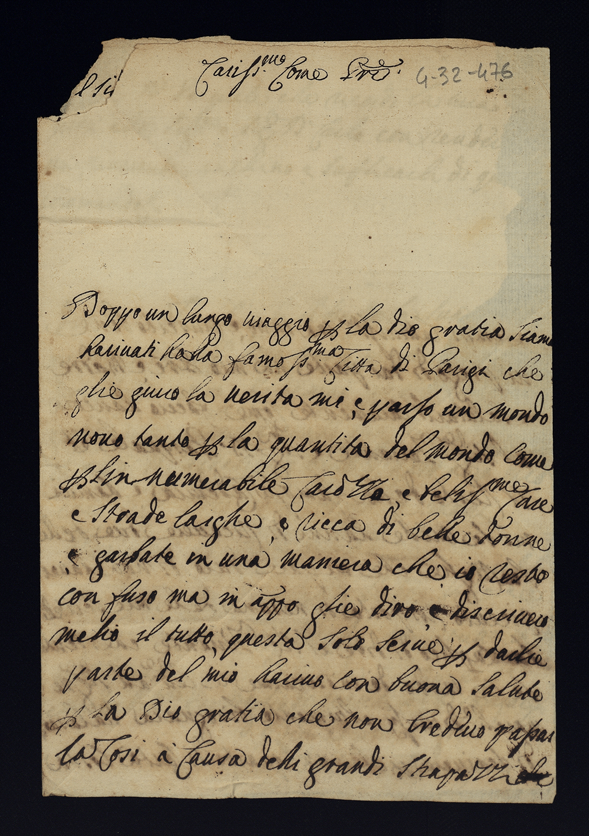 Cariss.mo Come Frẽ.
4-32-476
Doppo un lungo viaggio p la dio gratia siam
harivati ha la famosS.ma Citta di Parigi che
glie giuro la verita mi è parso un mondo
novo tanto p la quantita del mondo come
p lin numerabile Carozze, e beliss.me Case
e Strade larghe, e ricca di belle donne
e garbate in una maniera che io resto
con fuso ma in apꝑo glie dirò e discrivero
melio il tutto, questa solo serve p darlie
parte del mio harivo con buona salute
p La Dio gratia che non Credevo passar
la Cosi à Causa delli grandi strapazzi